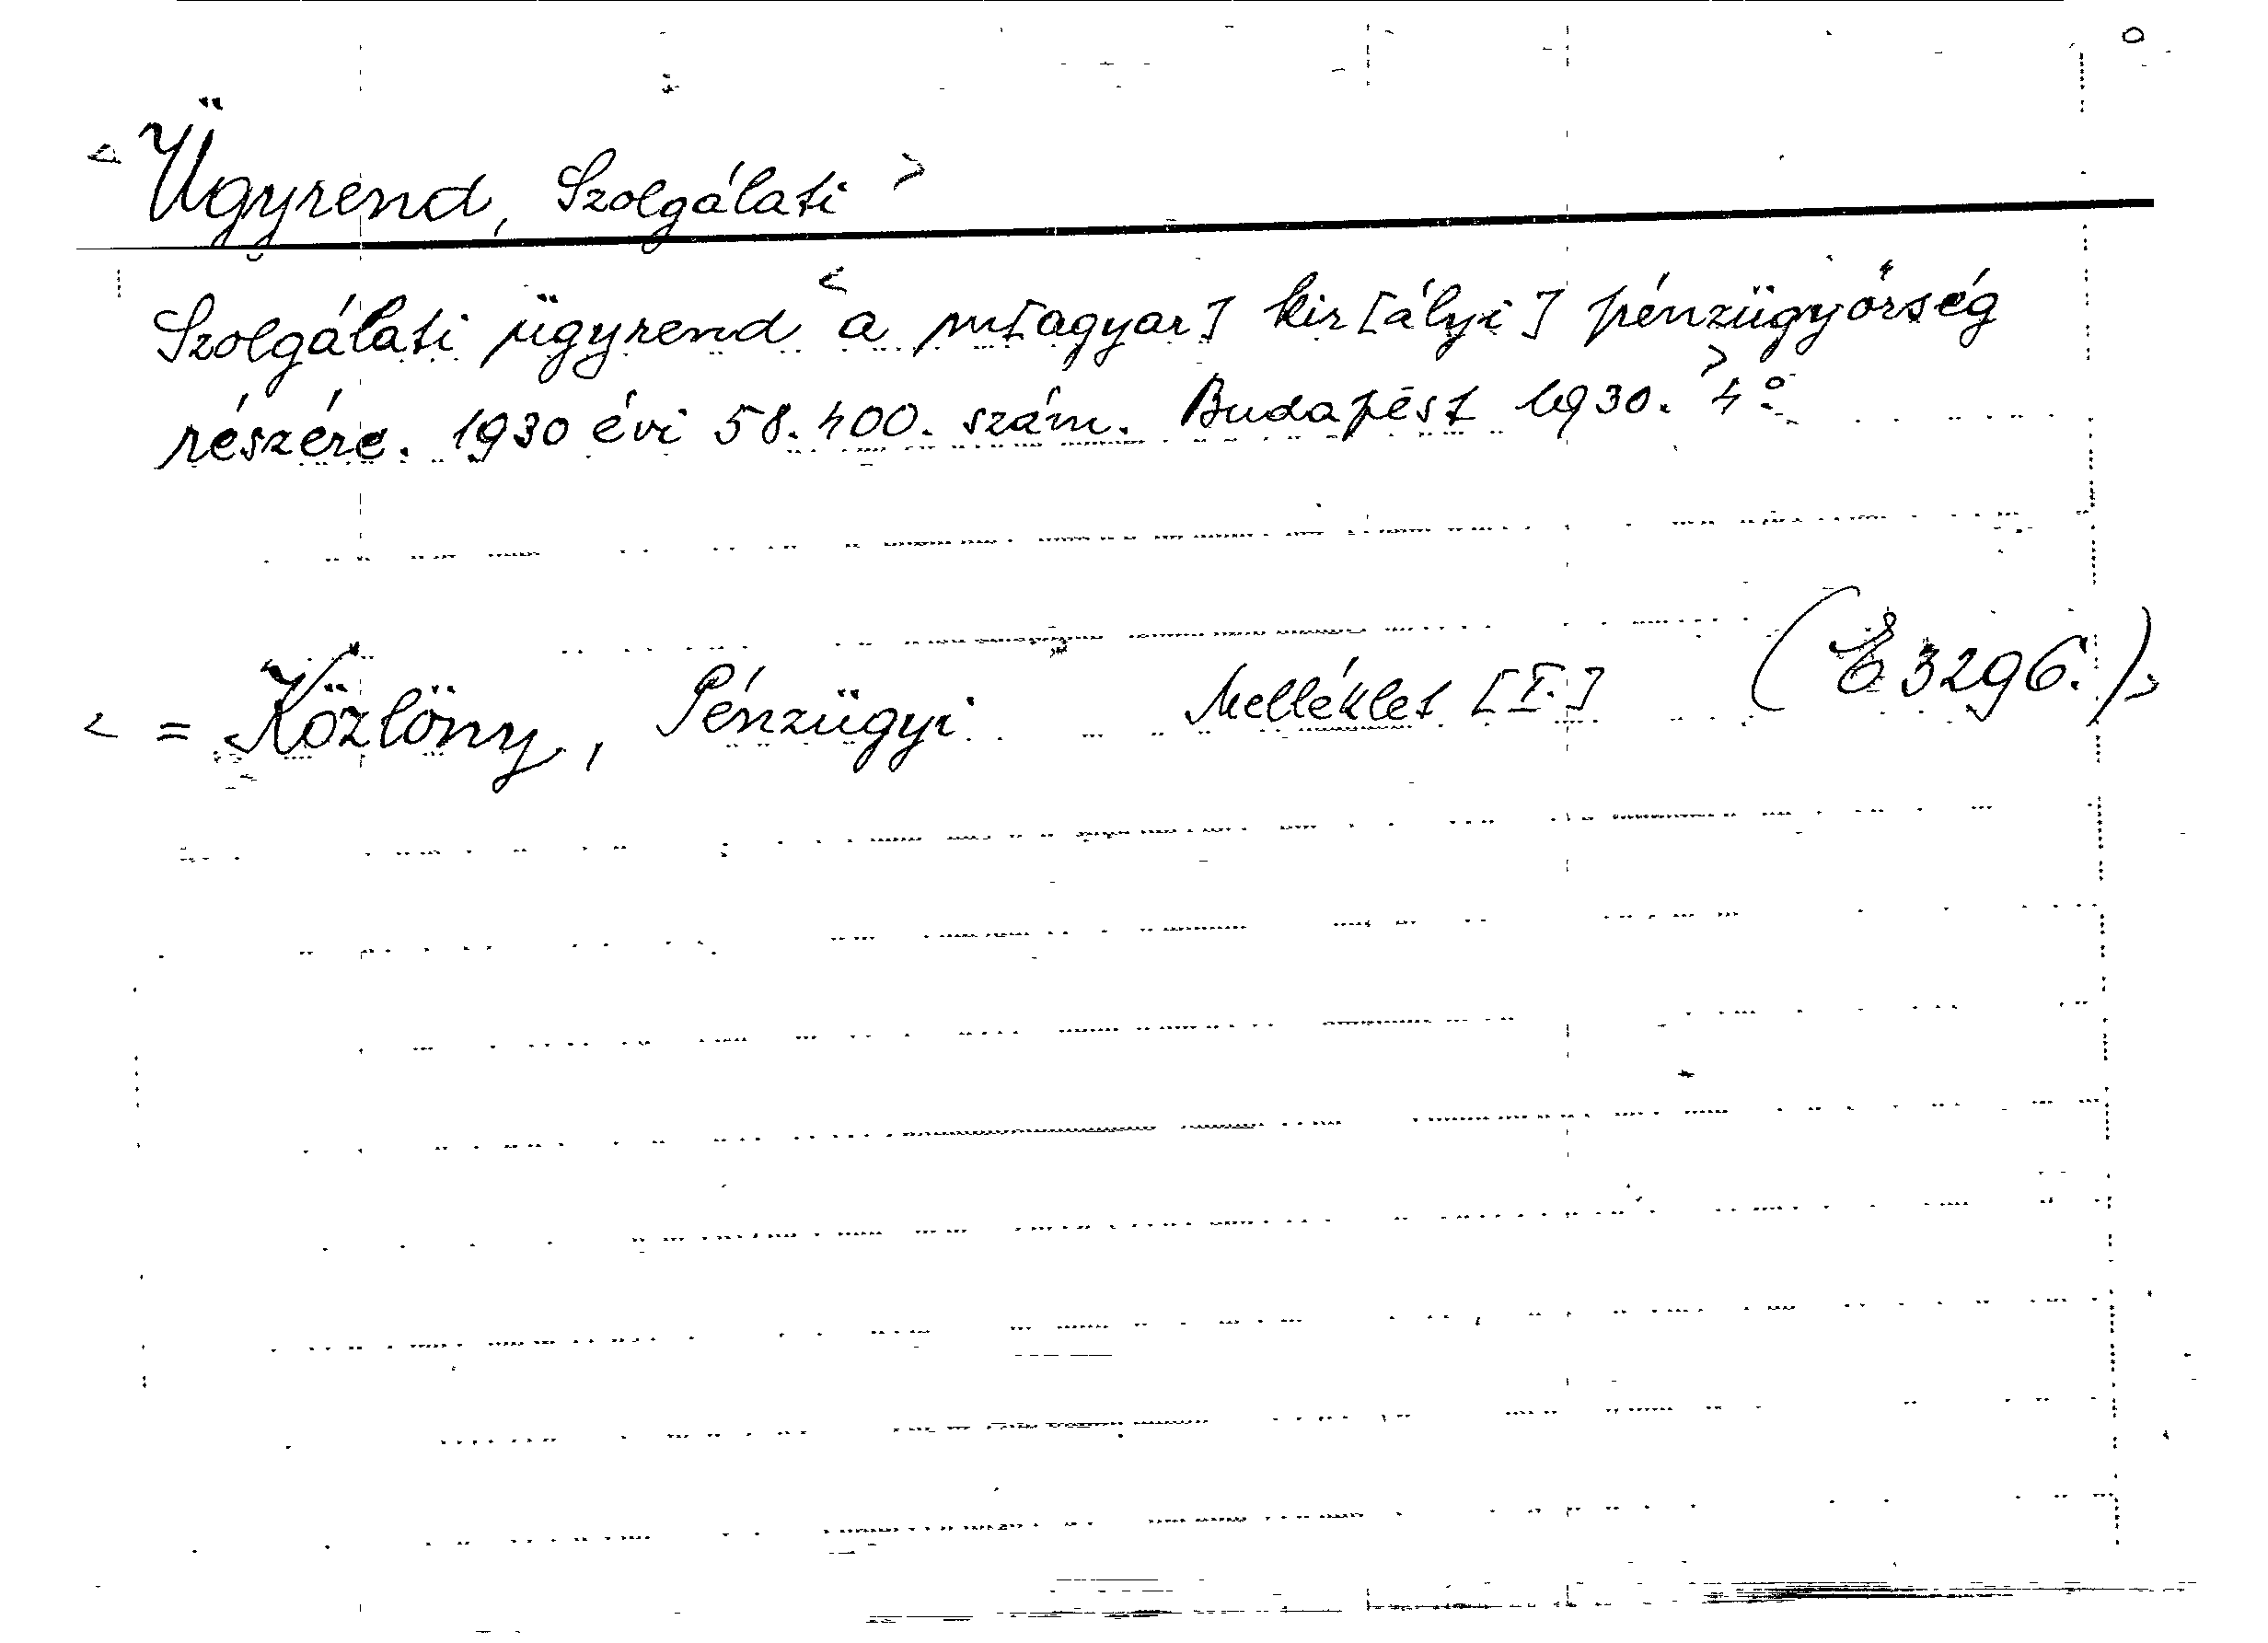 < Ügyrend, Szolgálati >
Szolgálati ügyrend < a m[agyar] kir[ályi] pénzügyőrség
részére. 1930 évi 58.400. szám. Budapest 1930. > 4°
< = Közlöny, Pénzügyi Melléklet [I.] (E 3296.) >